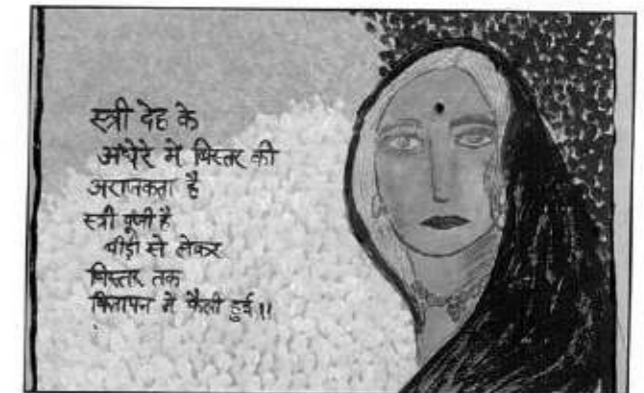 स्त्री देह के
अंधेरे में बिस्तर की
अराजकता है
स्त्री पूंजी है
बीड़ी से लेकर
बिस्तर तक
विज्ञापन में फैली हुई !!